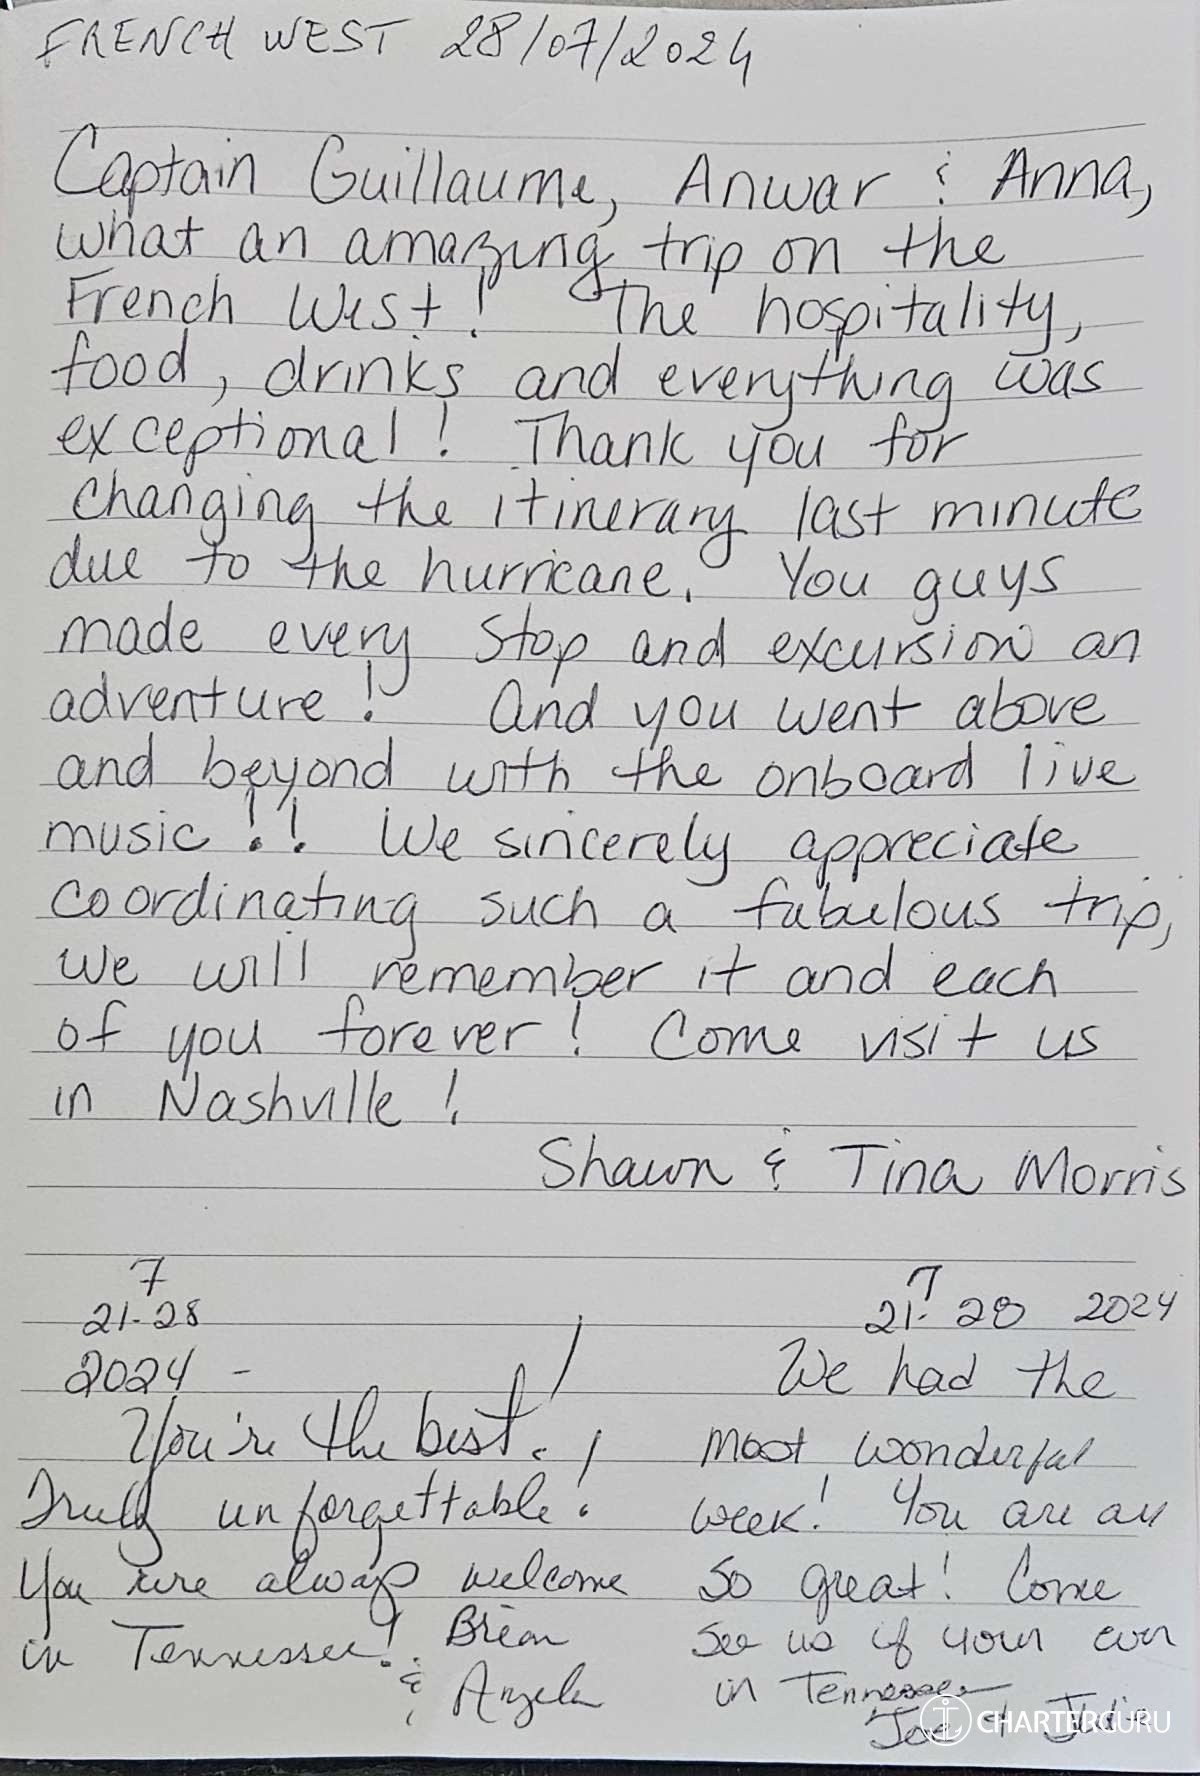 FRENCH WEST 28/07/2024
Captain Guillaume, Anwar & Anna,
what an amazing trip on the
French West! The hospitality,
food, drinks and everything was
exceptional! Thank you for
changing the itinerary last minute
due to the hurricane. You guys
made every stop and excursion an
adventure! And you went above
and beyond with the onboard live
music!! We sincerely appreciate
coordinating such a fabulous trip,
we will remember it and each
of you forever! Come visit us
in Nashville!
Shawn & Tina Morris
7
21-28
2024 -
You're the best!
Truly unforgettable!
You are always welcome
in Tennessee! Brian
& Angela
7
21-28 2024
We had the
most wonderful
week! You are all
so great! Come
see us if your ever
in Tennessee
Joe & Julie
CHARTERGURU